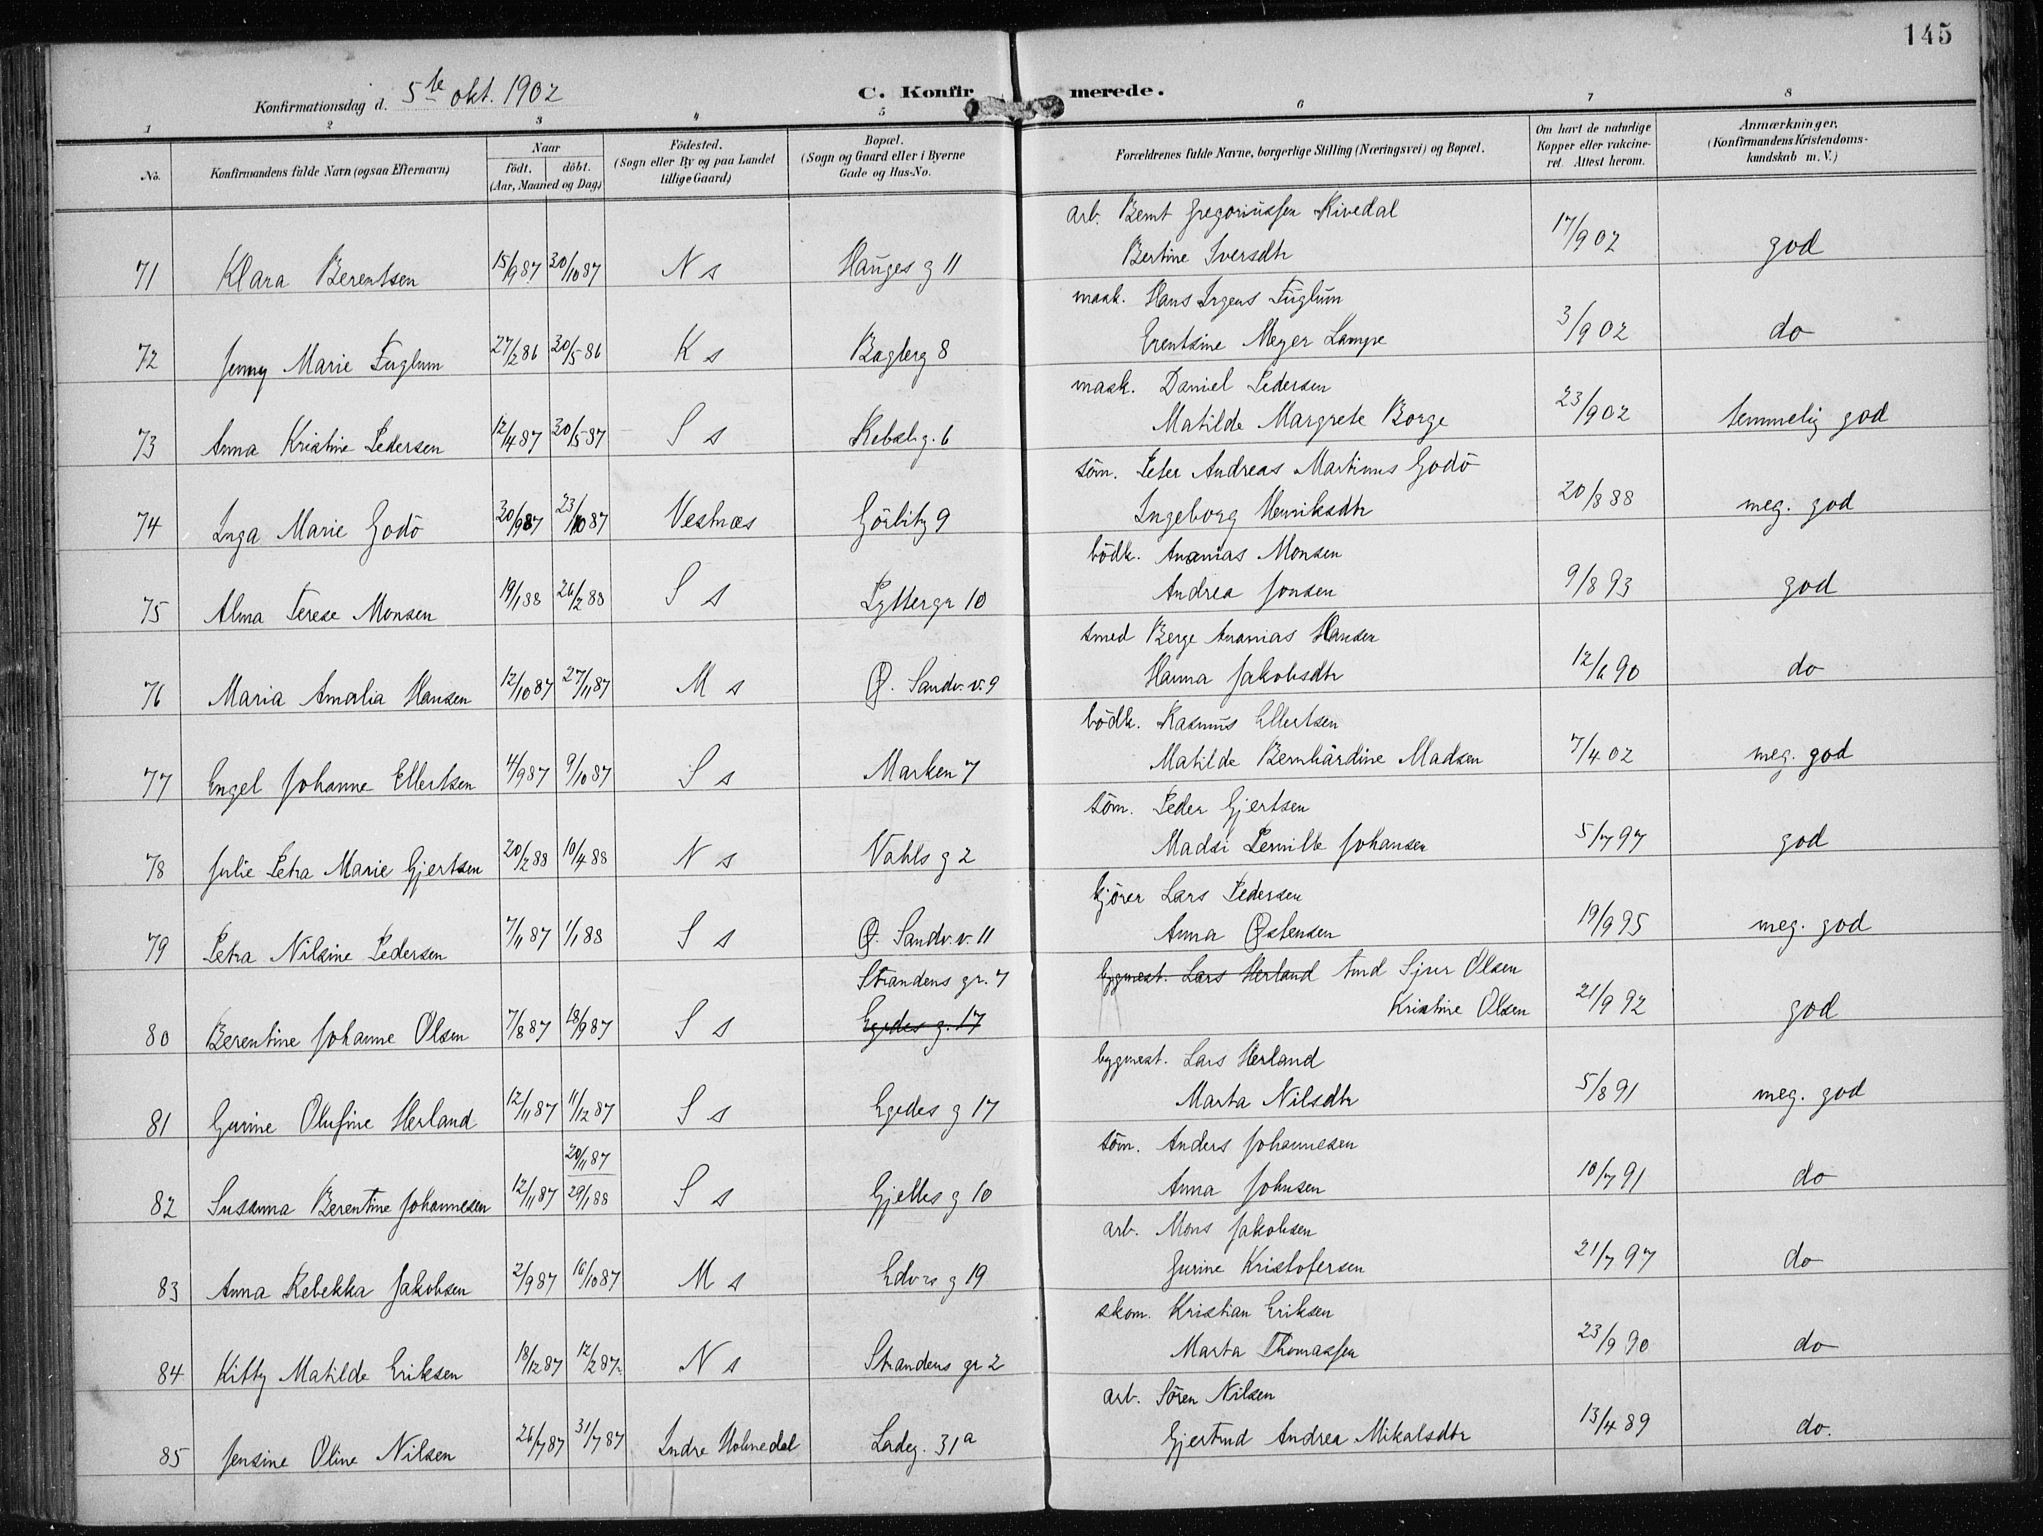 145
Konfirmationsdag d. 5te okt. 1902
C. Konfirmerede.
1 2 3 4 5 6 7 8
No. Konfirmandens fulde Navn (ogsaa Efternavn) Naar født. døbt. (Aar, Maaned og Dag) Födested. (Sogn eller By og paa Landet tillige Gaard) Bopæl. (Sogn og Gaard eller i Byerne Gade og Hus-No. Forældrenes fulde Navne, borgerlige Stilling (Næringsvei) og Bopæl. Om havt de naturlige Kopper eller vakcineret. Attest herom. Anmærkninger, (Konfirmandens Kristendomskundskab m. V.)
arb. Bernt Gregoriussen Kivedal
71 Klara Berentsen 15/9 87 30/10 87 N s Hauges g 11 Bertine Iversdtr 17/9 02 god
mask. Hans Irgens Fuglum
72 Jenny Marie Fuglum 27/2 86 20/5 86 K s Baglerg 8 Erentsine Meyer Lampe 3/9 02 do
mask. Daniel Pedersen
73 Anna Kristine Pedersen 12/4 87 20/5 87 S s Rebslg. 6 Matilde Margrete Borge 23/9 02 temmelig god
söm. Peter Andreas Martinus Godö
74 Inga Marie Godö 20/9 87 23/10 87 Vestnæs Görbitz 9 Ingeborg Henriksdtr 20/8 88 meg. god
bödk. Ananias Monsen
75 Alma Terese Monsen 19/1 88 26/2 88 S s Lyttergr 10 Andrea Jonsen 9/8 93 god
smed Berge Ananias Hansen
76 Maria Amalia Hansen 12/10 87 27/11 87 M s Ø. Sandv. v. 9 Hanna Jakobsdtr 12/6 90 do
bödk. Rasmus Ellertsen
77 Engel Johanne Ellertsen 4/9 87 9/10 87 S s Marken 7 Matilde Bernhardine Madsen 7/4 02 meg. god
söm. Peder Gjertsen
78 Julie Petra Marie Gjertsen 20/2 88 10/4 88 N s Vahls g 2 Madsi Pernille Johansen 5/7 97 god
kjörer Lars Pedersen
79 Petra Nilsine Pedersen 7/11 87 1/1 88 S s Ø. Sandv. v. 11 Anna Østensen 19/9 95 meg. god
Strandens gr. 7 bygmest. Lars Herland tmd Sjur Olsen
80 Berentine Johanne Olsen 7/8 87 18/9 87 S s Egedes g. 17 Kristine Olsen 21/9 92 god
bygmest. Lars Herland
81 Gurine Olufine Herland 12/11 87 11/12 87 S s Egedes g 17 Marta Nilsdtr 5/8 91 meg. god
20/11 87 söm. Anders Johannesen
82 Susanna Berentine Johannesen 12/11 87 29/1 88 S s Gjelles g 10 Anna Johnsen 10/7 91 do
arb. Mons Jakobsen
83 Anna Rebekka Jakobsen 2/9 87 16/10 87 M s Edvrs g 19 Gurine Kristofersen 21/7 97 do
skom. Kristian Eriksen
84 Kitty Matilde Eriksen 18/12 87 12/2 87 N s Strandens gr 2 Marta Thomassen 23/9 90 do
arb. Sören Nilsen
85 Jensine Oline Nilsen 26/7 87 31/7 87 Indre Holmedal Ladeg. 31a Gjertrud Andrea Mikalsdtr 13/4 89 do.